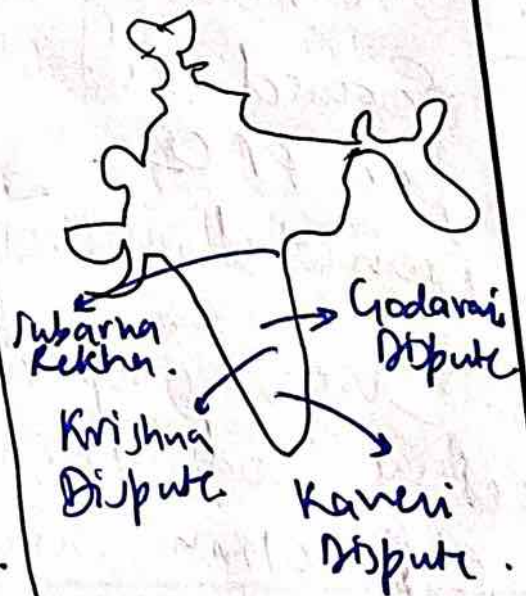 Subarna
Rekha.
Godavari
Dispute
Krishna
Dispute.
Kaveri
Dispute.